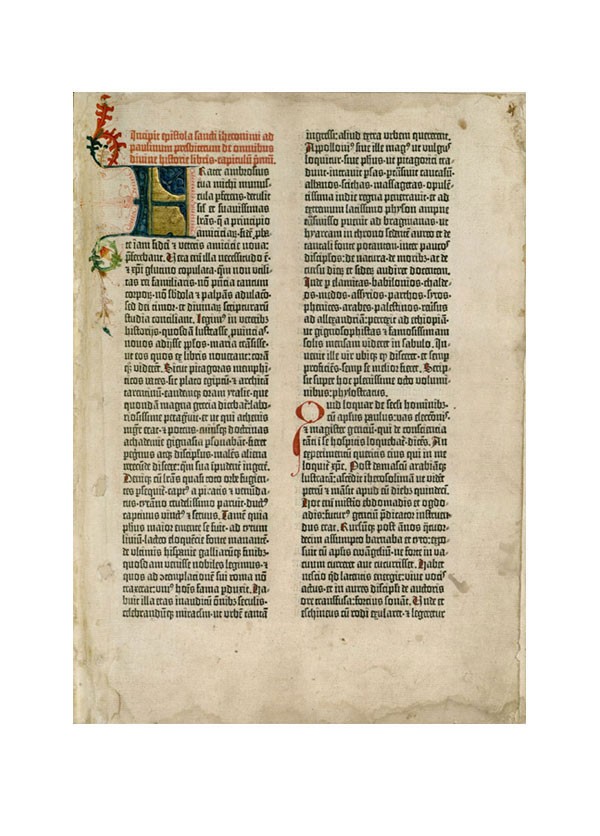 Incipit epistola sancti iheronimi ad
paulinum presbiterum de omnibus
divine historie libris capitulū pmū.
Frater ambrosius
tua michi munus-
cula pferens· detulit
sil' et suavissimas
lr̄as· q̄ a principio
amiciciaꝝ· fidē pba-
te iam fidei ⁊ veteris amicicie nova:
pferebant. Vera eni illa necessitudo ē·
⁊ xpi glutino copulata· qm non vtili-
tas rei familiaris· nō pn̄tia tantum
corporꝝ· nō sbdola ⁊ palpās adulaco·
sed dei timor· et divinaꝝ scripturarū
studia conciliant. Legim⁹ in veterib⁹
historijs· quosdā lustrasse pvincias·
novos adijsse pplos· maria transisse·
ut eos quos ex libris noverant: coram
qꝫ viderēt. Sicut pitagoras memphi-
ticos vates· sic plato egiptū· ⁊ architā
tarentinū· eandemqꝫ oram ytalie· que
quondā magna grecia dicebat̄: labo-
riosissime peragravit· et ut qui athenis
mgr̄ erat· ⁊ potens· cuiusqꝫ doctrinas
achademie gignasia psonabāt· fieret
pegrinus atqꝫ discipulus· malens aliena
verecunde discere: qm sua īpudent̄ ingerē.
Deniqꝫ cū lr̄as quasi toto orbe fugien-
tes psequit̄· capt⁹ a piratis ⁊ venūda-
tus· tyranno crudelissimo paruit· duct⁹
captivus vinct⁹ ⁊ servus. Tamē quia
philosophus· maior emente se fuit· ad tytum
liviū· lacteo eloquētie fonte manantē·
de vltimis hispanie galliarūqꝫ finib⁹·
quosdam venisse nobiles legimus· ⁊
quos ad ɔtemplacionē sui roma nō
traxerat: vni⁹ hoīs fama pduxit. Ha-
buit illa etas inauditū oīb⁹ seculis·
celebrandūqꝫ miraclm· ut vrbē tantā
ingressi: aliud extra vrbem quererent.
Appolloni⁹ sive ille mag⁹ ut vulgus
loquitur· sive phus· ut pitagorici tra-
dunt· intravit psas· ptrāsivit caucasū·
albanos· scithas· massagetas· opulē-
tissima indie regna penetravit· et ad
extremum latissimo physon ampne
trāsmisso puenit ad bragmanas· ut
hyarcam in throno sedentē aureo ⁊ de
tantali fonte potantem· inter paucos
discipulos· de natura· de moribus· ac de
cursu dierū ⁊ siderum audiret docentem.
Inde p elamitas· babilonios· chalde-
os· medos· assyrios· parthos· syros·
phenices· arabes· palestinos· reversus
ad allexandriā: perrexit ad ethiopiā·
ut gignosophistas ⁊ famosissimam
solis mensam videret in sabulo. In-
venit ille vir ubiqꝫ qd disceret· et semp
proficiens: semp se melior fieret. Scrip-
sit super hoc plenissime octo volumi-
nibus: phylostratus.
Quid loquar de seculi hominib⁹:
cū apl'us paulus· vas electionis
⁊ magister gentiū· qui de conscientia
tanti ī se hospitis loquebat̄· dicēs. An
experimentū queritis eius qui in me
loquit̄ xpc. Post damascū arabiāqꝫ
lustratā: ascēdit iherosolimā ut videt
petrū ⁊ māsit apud eū diebus quindeci·
Hoc eni misterio ebdomadis et ogdo-
adis: futur⁹ gentiū pdicator instruen-
dus erat. Rursūqꝫ post ānos q̄tuor-
decim assumpto barnaba et tyto: expo-
suit cū apl'is evangeliū· ne forte in va-
cuum curreret aut cucurrisset. Habet
nescio qd latentis energie: vive vocis
act⁹· et in aures discipli de auctoris
ore transfusa: fortius sonat. Vnde et
eschineus cū rodi exularet· ⁊ legeretur